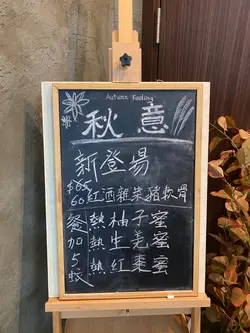 Autumn Feeling
秋意
新登場
$65
60 紅酒雜菜豬軟骨
餐 熱柚子蜜
加 熱生羗蜜
5
蚊 熱紅棗蜜